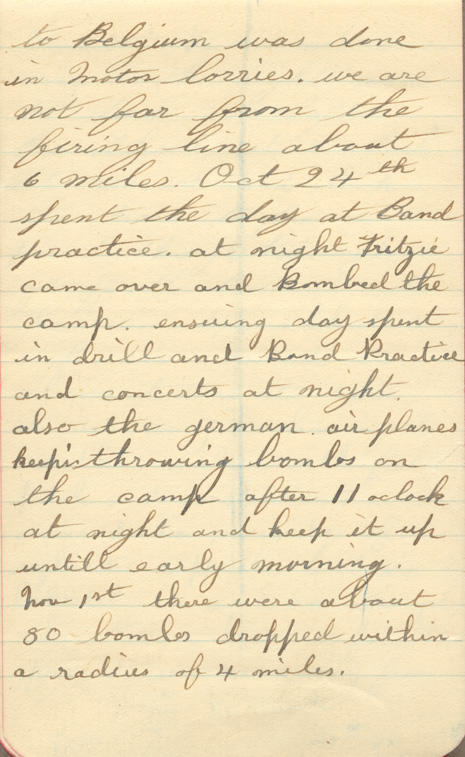 to Belgium was done
in Motor lorries. we are
not far from the
firing line about
6 miles. Oct 24th
spent the day at Band
practice. at night Fritzie
came over and Bombed the
camp. ensuing day spent
in drill and Band Practice
and concerts at night.
also the german air planes
keepis throwing bombs on
the camp after 11 oclock
at night and keep it up
untill early morning.
Nov 1st there were about
80 bombs dropped within
a radius of 4 miles.